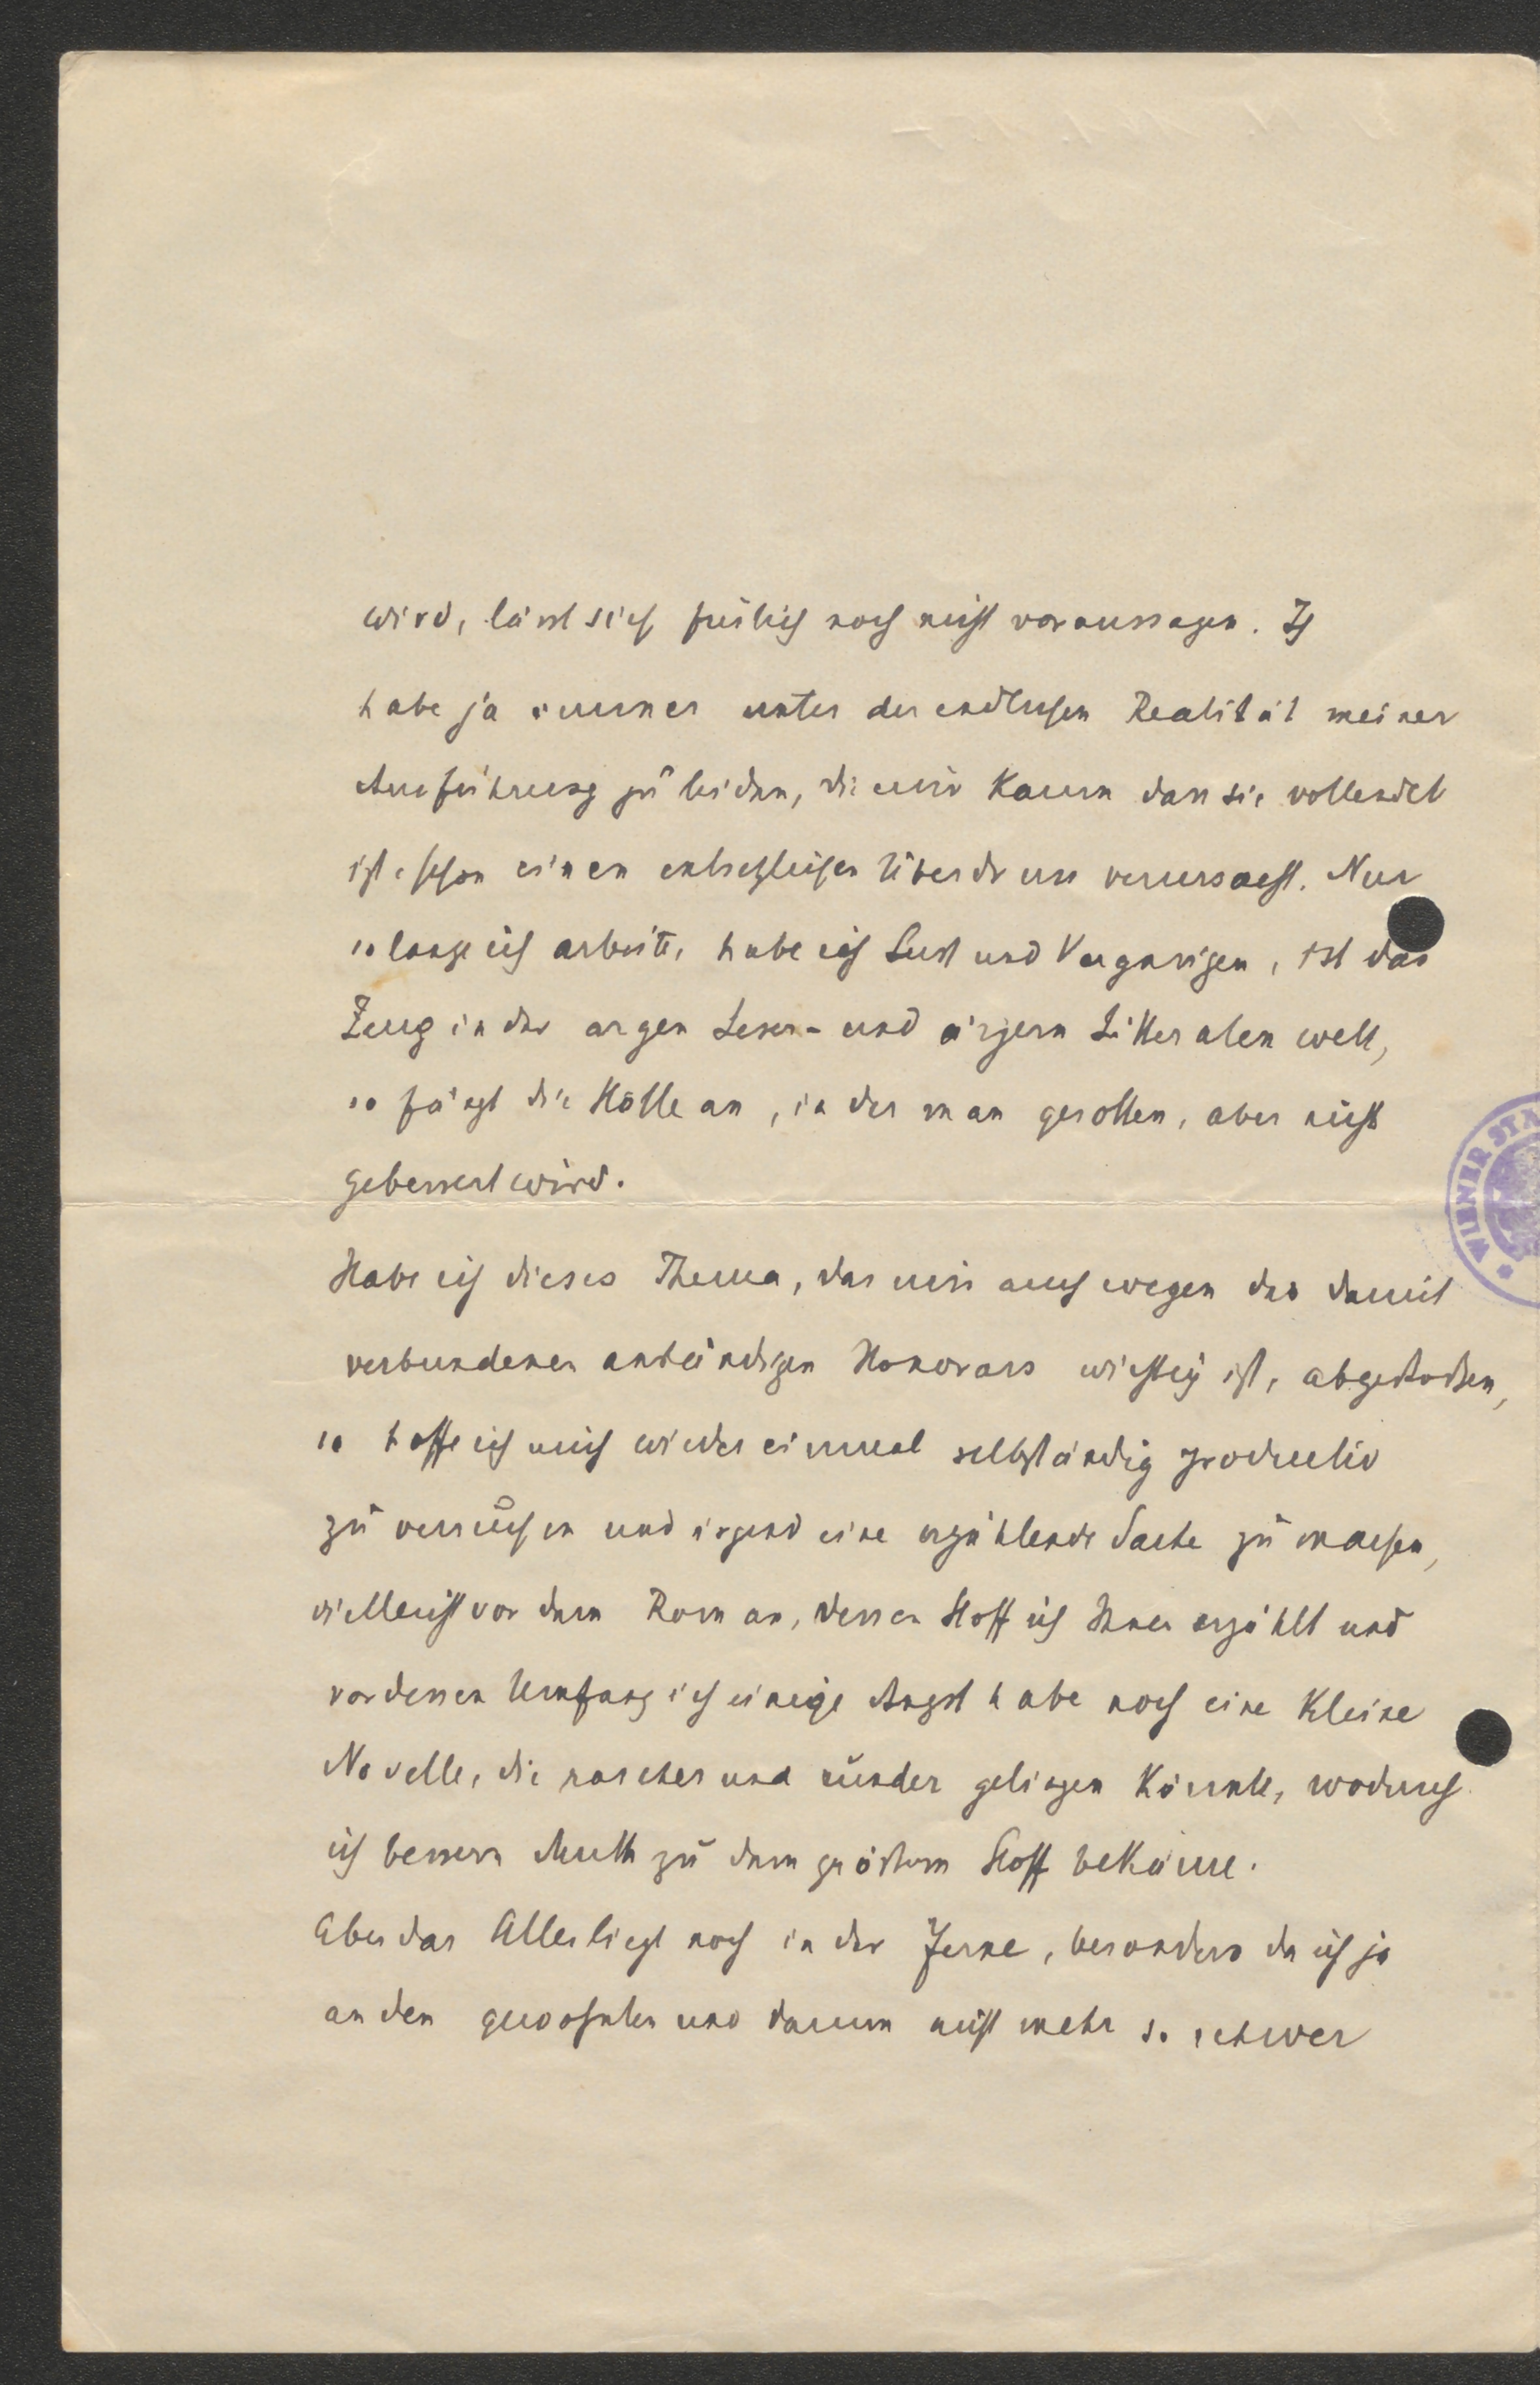 wird, lässt sich freilich noch nicht voraussagen. Ich
habe ja immer unter der endlichen Realität meiner
Ausführung zu leiden, die mir kaum dass sie vollendet
ist, schon einen entsetzlichen Überdruss verursacht. Nur
solange ich arbeite, habe ich Lust und Vergnügen, ist das
Zeug in der argen Leser- und ärgern Litteratenwelt,
so fängt die Hölle an, in der man gesotten, aber nicht
gebessert wird.
Habe ich dieses Thema, das mir auch wegen des damit
verbundenen anständigen Honorars wichtig ist, abgestoßen,
so hoffe ich mich wieder einmal selbständig productiv
zu versuchen und irgend eine erzählende Sache zu machen,
vielleicht vor dem Roman, dessen Stoff ich Ihnen erzählt und
vor dessen Umfang ich einige Angst habe noch eine kleine
Novelle, die rascher und runder gelingen könnte, wodurch
ich bessern Muth zu dem größern Stoff bekäme.
Aber das Alles liegt noch in der Ferne, besonders da ich ja
an den gewohnten und darum nicht mehr so schwer
WIENER STA